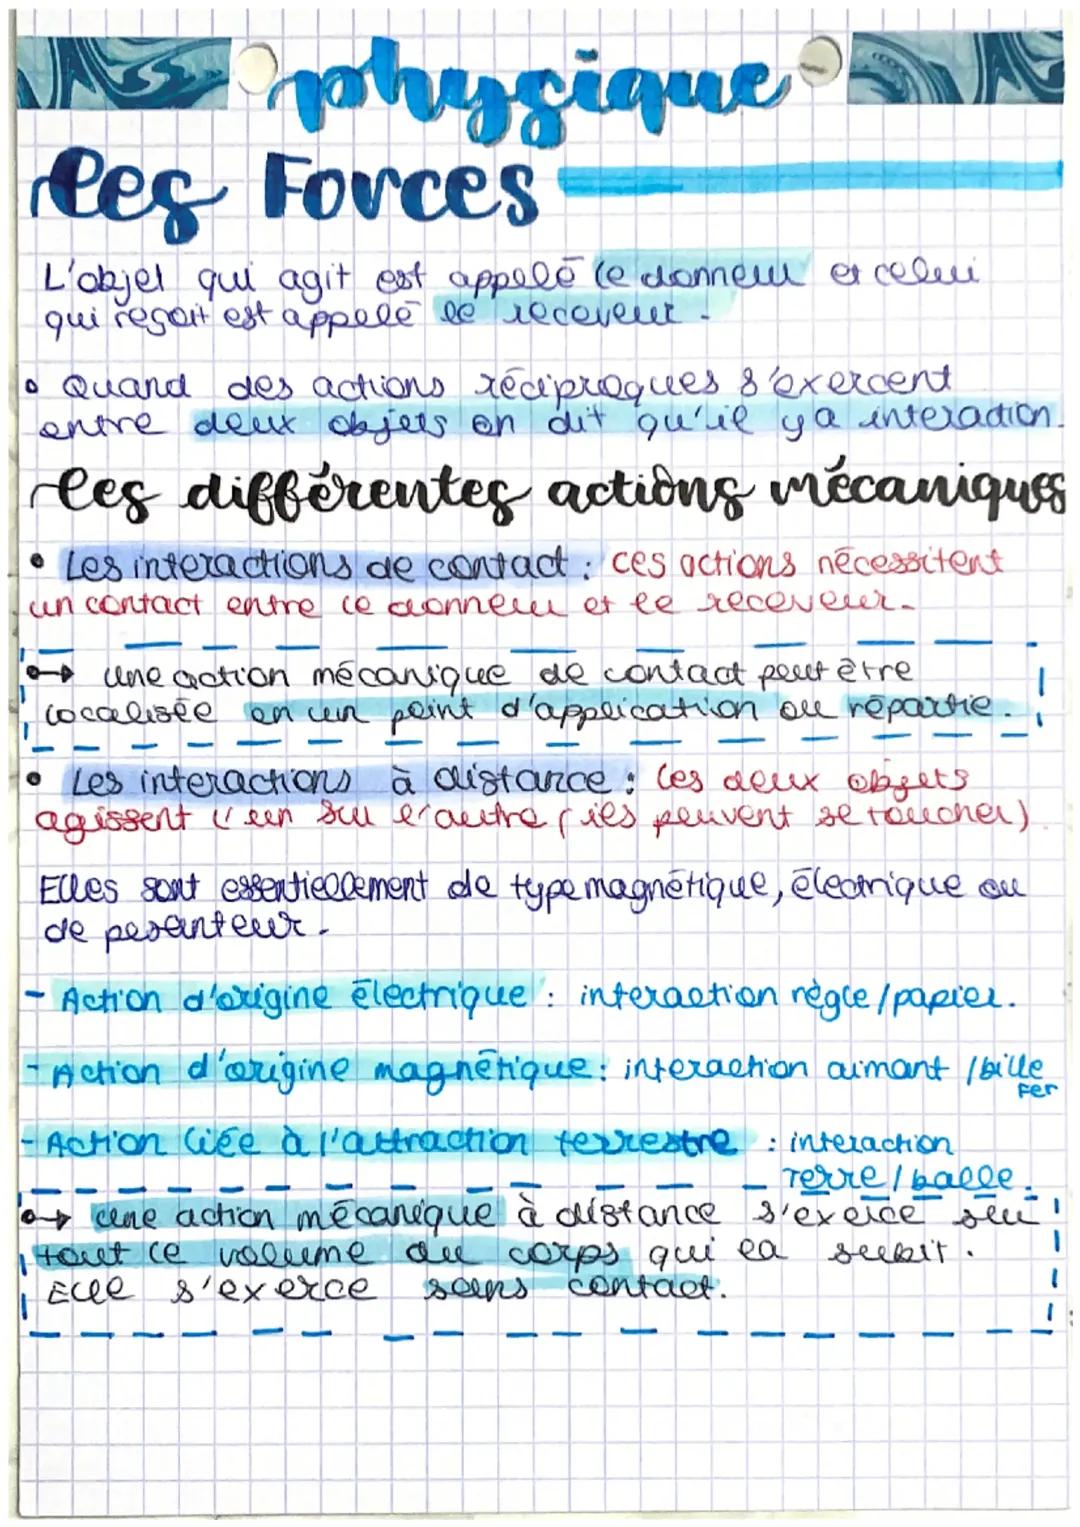 physique
les Forces
L'objet qui agit est appelé le donneur et celui
qui reçoit est appelé le receveur.
• Quand des actions réciproques s'exercent
entre deux objets on dit qu'il y a interaction.
les différentes actions mécaniques
• Les interactions de contact : ces actions nécessitent
un contact entre le donneur et le receveur.
→ une action mécanique de contact peut être
localisée en un point d'application ou répartie.
• Les interactions à distance : les deux objets
agissent l'un sur l'autre (ils peuvent se toucher).
Elles sont essentiellement de type magnétique, électrique ou
de pesanteur.
- Action d'origine électrique : interaction règle/papier.
- Action d'origine magnétique : interaction aimant /bille
Fer
- Action liée à l'attraction terrestre : interaction
Terre/balle.
→ une action mécanique à distance s'exerce sur
tout le volume du corps qui la subit.
Elle s'exerce sans contact.